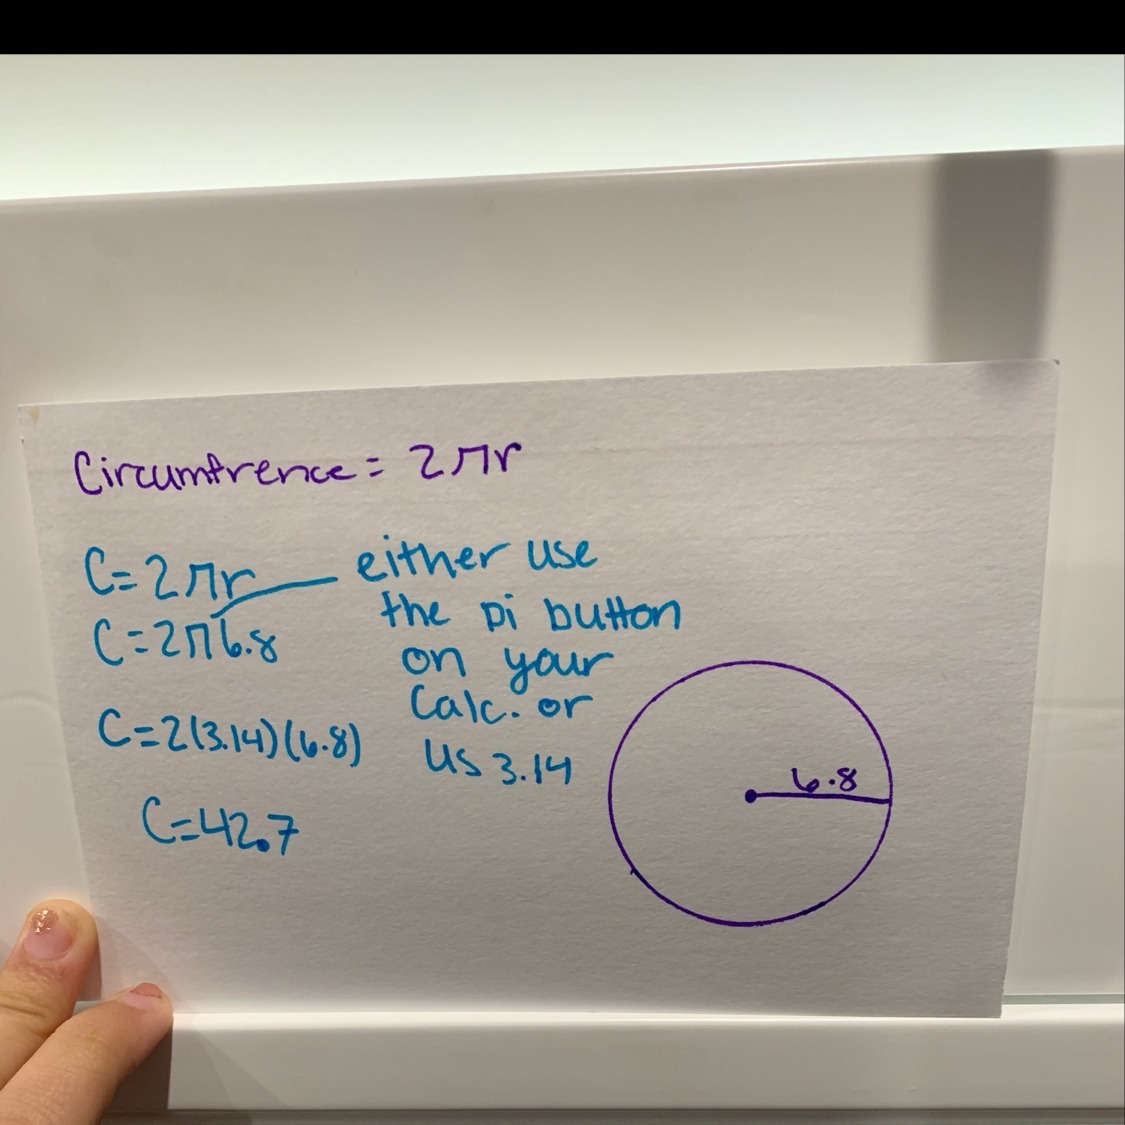 Circumfrence = 2πr
C=2πr
either use
the pi button
on your
Calc. or
us 3.14
C=2π6.8
C=2(3.14)(6.8)
C=42.7
6.8